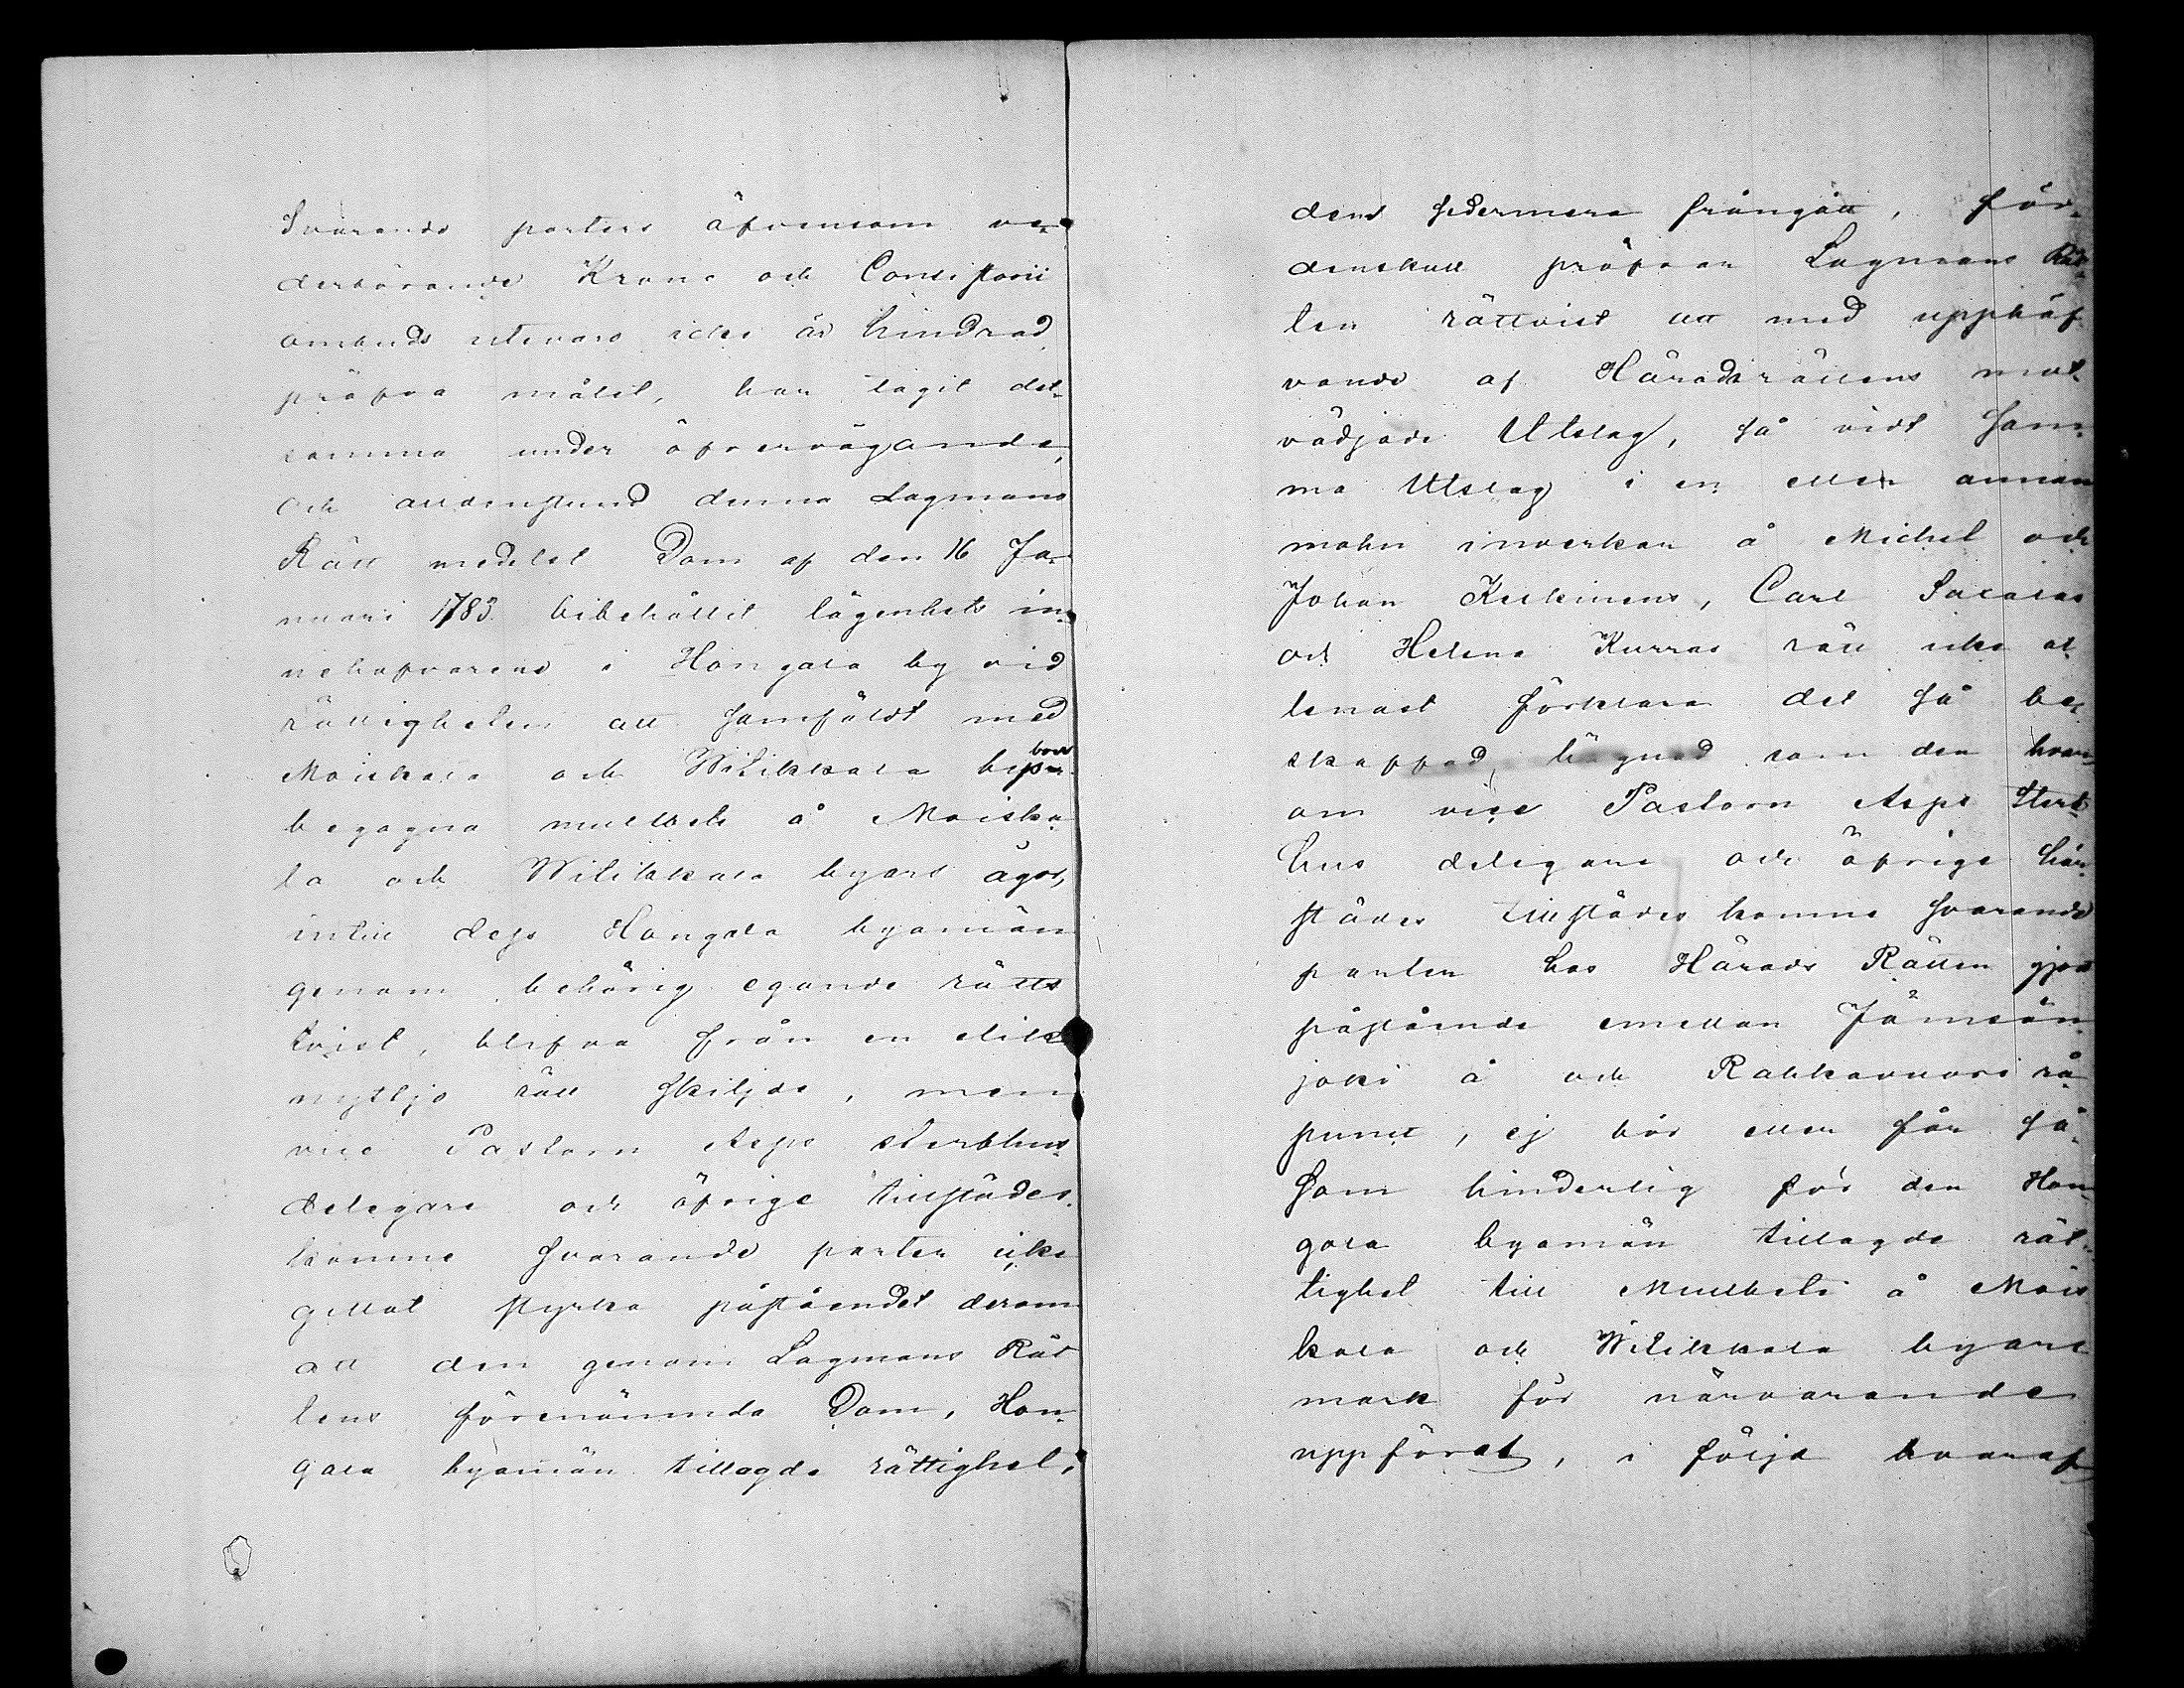 Svarande parters äfvensom ve-
derbörande Krono och Consistorii
ombuds utevaro icke är hindrad
pröfva målet, har tagit det-
samma under öfvervägande,
och alldenstund denna Lagmans
Rätt medelst Dom af den 16 Ja-
nuari 1783 bibehållit lägenhets in-
nehafvarene i Hongala by vid
rättigheten att samfäldt med
Moiskala och Wilikkala byboer
begagna mulbete å Moiska-
la och Wilikkala byars ägor,
intill dess Hongala byamän
genom behörig egande rätts
tvist, blifva från en slik
nyttjo rätt skiljde, men
vice Pastorn Asps sterbhus-
delegare och öfrige tillstädes-
komne Svarande parter icke
gittat styrka påståendet derom
att den genom Lagmans Rät
tens förenämnda Dom, Hon-
gala byamän tillagde rättighet,
dem sedermera frångått, för-
denskull pröfvar Lagmans Rät-
ten rättvist att med upphäf
vande af Häradsrättens mot-
vädjade Utslag, så vidt sam-
ma Utslag i en eller annan
mohn inverkar å Michel och
Johan Keskinens, Carl
och Helena Kurras rätt icke al-
lenast förklara det så be-
skaffad hägnad som den hvar-
om vice Pastorn Asps Sterb-
hus delegare och öfrige här-
städes tillstädes komne Svarande
parter hos Härads Rätten gjort
påstående emellan Jämsän-
joki å och Rakkavuori rå
punct, ej bör eller får så-
som hinderlig för den Hon-
gala byamän tillagde rät-
tighet till Mulbete å Mois
kala och Wilikkala byars
mark för närvarande
uppföras, i följd hvaraf